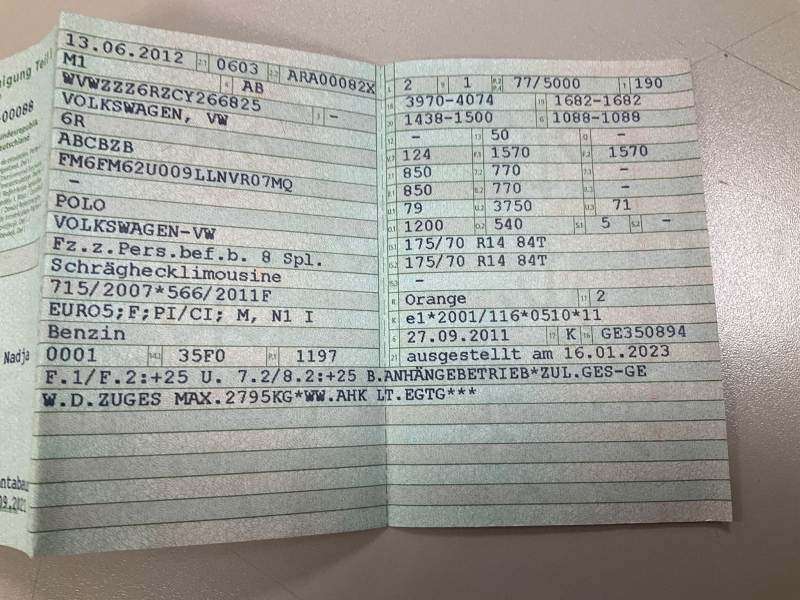 igung Teil
00088
undesrepublik
eutschland
Nadja
13.06.2012 2.1 0603 2.2 ARA00082X
M1 4 AB
WVWZZZ6RZCY266825 3 -
VOLKSWAGEN, VW
6R
ABCBZB
FM6FM62U009LLNVR07MQ
-
POLO
VOLKSWAGEN-VW
Fz.z.Pers.bef.b. 8 Spl.
Schräghecklimousine
715/2007*566/2011F
EURO5;F;PI/CI; M, N1 I
Benzin
0001 14.1 35F0 P.1 1197
L 2 9 1 P.2 P.4 77/5000 T 190
18 3970-4074 19 1682-1682
20 1438-1500 G 1088-1088
12 - 13 50 Q -
V.7 124 F.1 1570 F.2 1570
7.1 850 7.2 770 7.3 -
8.1 850 8.2 770 8.3 -
U.1 79 U.2 3750 U.3 71
O.1 1200 O.2 540 S.1 5 S.2 -
15.1 175/70 R14 84T
15.2 175/70 R14 84T
15.3 -
R Orange 11 2
K e1*2001/116*0510*11
6 27.09.2011 17 K 16 GE350894
21 ausgestellt am 16.01.2023
F.1/F.2:+25 U. 7.2/8.2:+25 B.ANHÄNGEBETRIEB*ZUL.GES-GE
W.D.ZUGES MAX.2795KG*WW.AHK LT.EGTG***